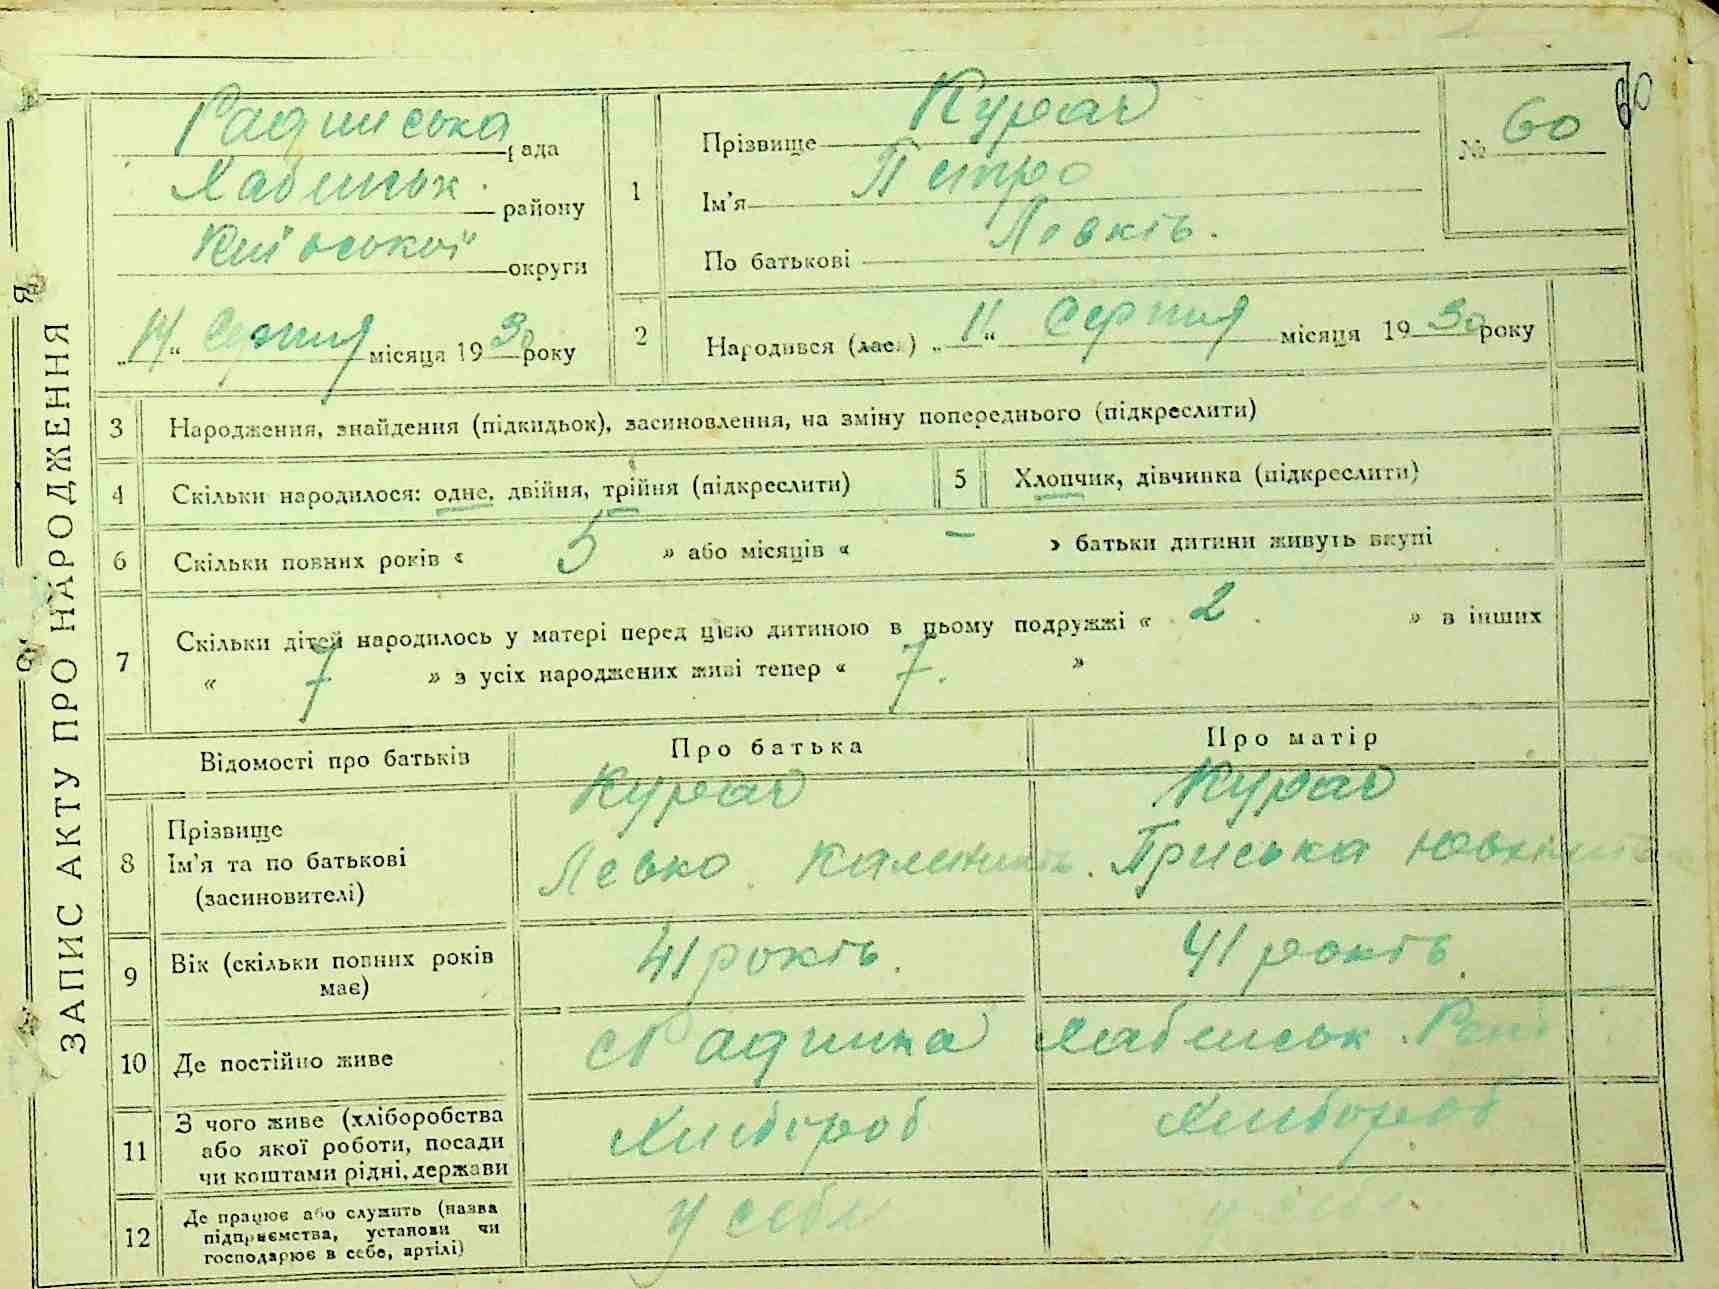 ЗАПИС АКТУ ПРО НАРОДЖЕННЯ
Радинська рада
Хабенськ. району
Київської округи
„14“ Серпня місяця 1930 року
1
Прізвище Курач
Ім'я Петро
По батькові Левків.
№ 60
60
2
Народився (лась) „11“ Серпня місяця 1930 року
3 Народження, знайдення (підкидьок), засиновлення, на зміну попереднього (підкреслити)
4 Скільки народилося: одне, двійня, трійня (підкреслити)
5 Хлопчик, дівчинка (підкреслити)
6 Скільки повних років « 5 » або місяців « – » батьки дитини живуть вкупі
7 Скільки дітей народилось у матері перед цією дитиною в цьому подружжі « 2 » в інших
« 7 » з усіх народжених живі тепер « 7. »
Відомості про батьків
Про батька
Про матір
8 Прізвище
Ім'я та по батькові
(засиновителі)
Курач
Левко
Курач
Приська
9 Вік (скільки повних років
має)
41 років.
41 років.
10 Де постійно живе
Радинка
Хабенськ.
11 З чого живе (хліборобства
або якої роботи, посади
чи коштами рідні, держави
Хлібороб
Хлібороб
12 Де працює або служить (назва
підприємства, установи чи
господарює в себе, артілі)
у себе
у себе